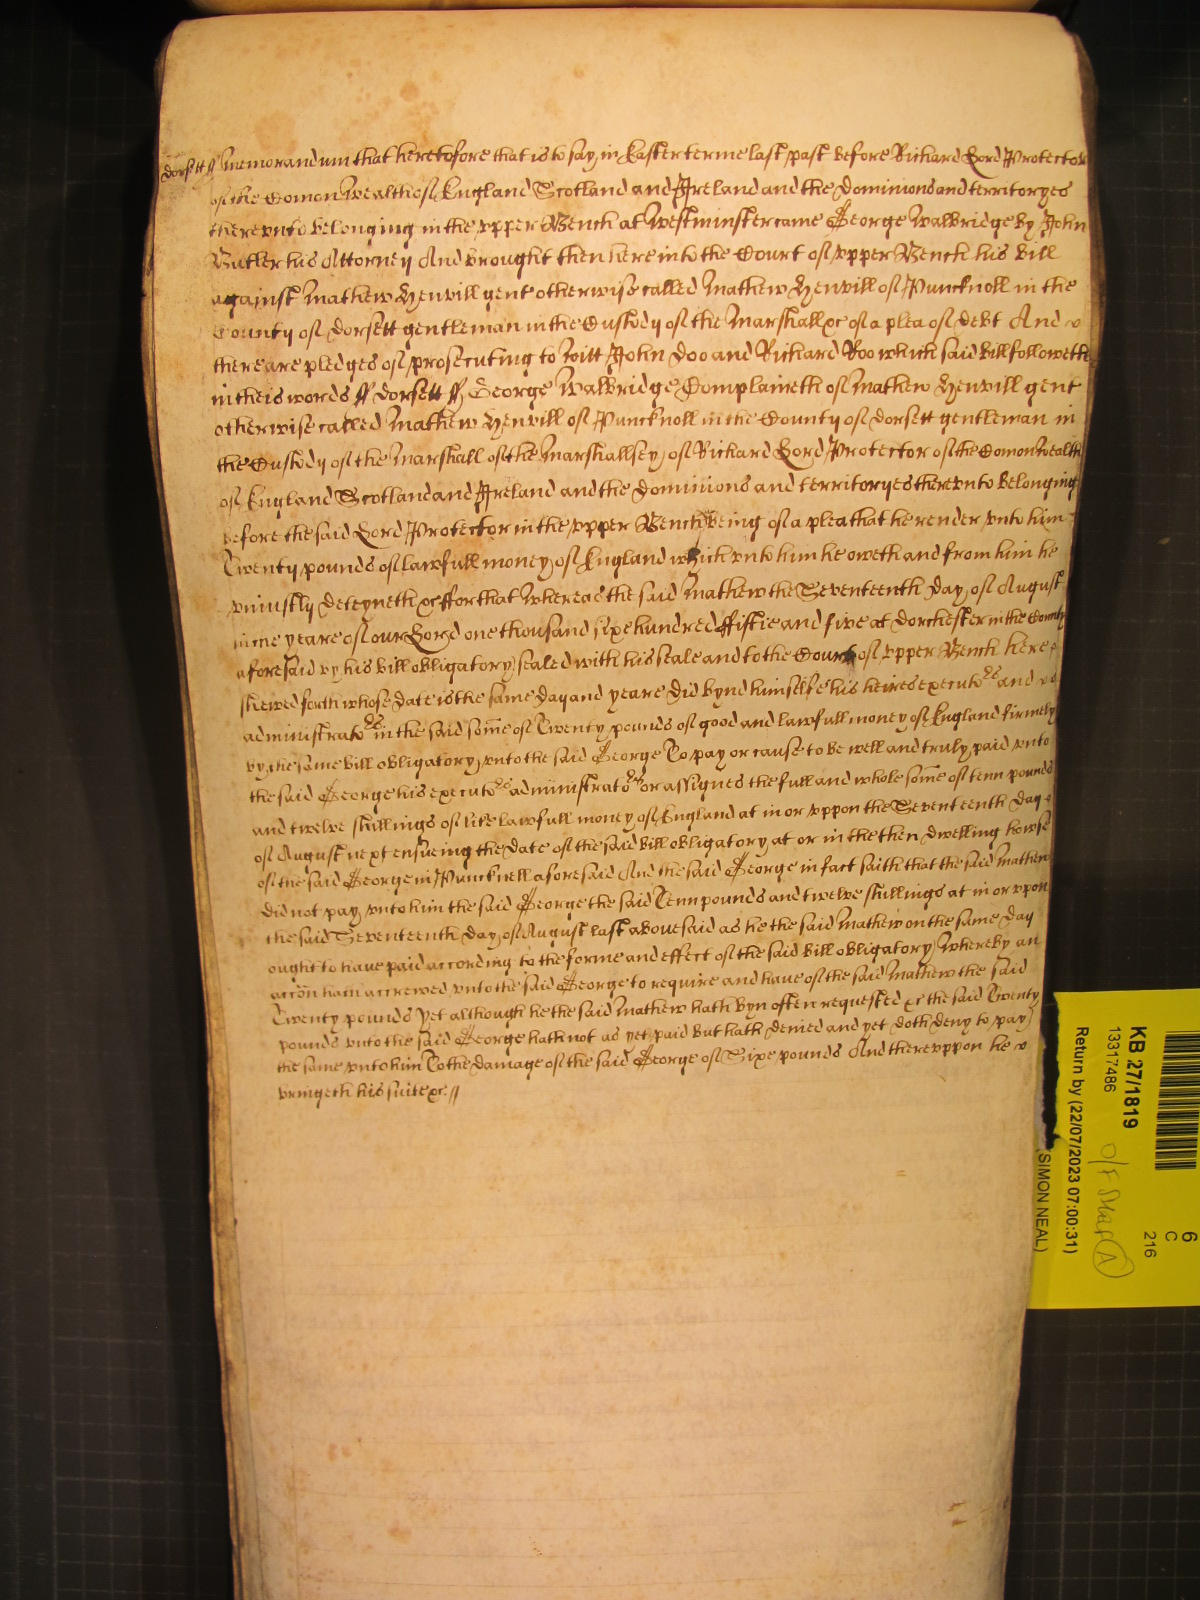 dorsett ff Memorandum that heretofore that is to say in Easter terme last past before Richard Lord Protector
of the Comon Wealth of England Scotland and Ireland and the dominions and territoryes
there vnto belonging in the vpper Bench at Westminster came George Walbridge by John
Butler his Attorney And brought then here into the Court of vpper Bench his bill
against Mathew Henvill gent otherwise called Mathew Henvill of Puncknoll in the
County of dorsett gentleman in the Custody of the Marshall &c of a plea of debt And
there are pledges of prosecuting to witt John doo and Richard Roo which said bill followeth
in theis words ff dorsett ff George Walbridge Complaineth of Mathew Henvill gent
otherwise called Mathew Henvill of Puncknoll in the County of dorsett gentleman in
the Custody of the Marshall of the Marshallsey of Richard Lord Protector of the Comon Wealth
of England Scotland and Ireland and the dominions and territoryes therevnto belonging
before the said Lord Protector in the vpper Bench being of a plea that he render vnto him
Twenty pounds of lawfull money of England which vnto him he oweth and from him he
vniustly deteyneth &c ffor that Whereas the said Mathew the Seventeenth day of August
in the yeare of our Lord one thousand sixe hundred ffiftie and five at dorchester in the County
aforesaid by his bill obligatory sealed with his seale and to the Court of vpper Bench here
shewed forth whose date is the same day and yeare did bynd himselfe his heires executors and
administrators in the said some of Twenty pounds of good and lawfull money of England firmely
by the same bill obligatory vnto the said George To pay or cause to be well and truly paid vnto
the said George his executors administrators or assignes the full and whole some of tenn pounds
and twelve shillings of like lawfull money of England at in or vppon the Seventeenth day
of August next ensueing the date of the said bill obligatory at or in the then dwelling howse
of the said George in Puncknell aforesaid And the said George in fact saith that the said Mathew
did not pay vnto him the said George the said Tenn pounds and twelve shillings at in or vpon
the said Seventeenth day of August last abouesaid as he the said Mathew on the same day
ought to have paid according to the forme and effect of the said bill obligatory Whereby an
accon hath accrewed vnto the said George to require and have of the said Mathew the said
Twenty pounds Yet although he the said Mathew hath byn often requested &c the said Twenty
pounds vnto the said George hath not as yet paid but hath denied and yet doth deny to pay
the same vnto him To the damage of the said George of Sixe pounds And therevppon he
bringeth his suite &c. //
KB 27/1819
13317486
Return by (22/07/2023 07:00:31)
SIMON NEAL)
6
C
216
A